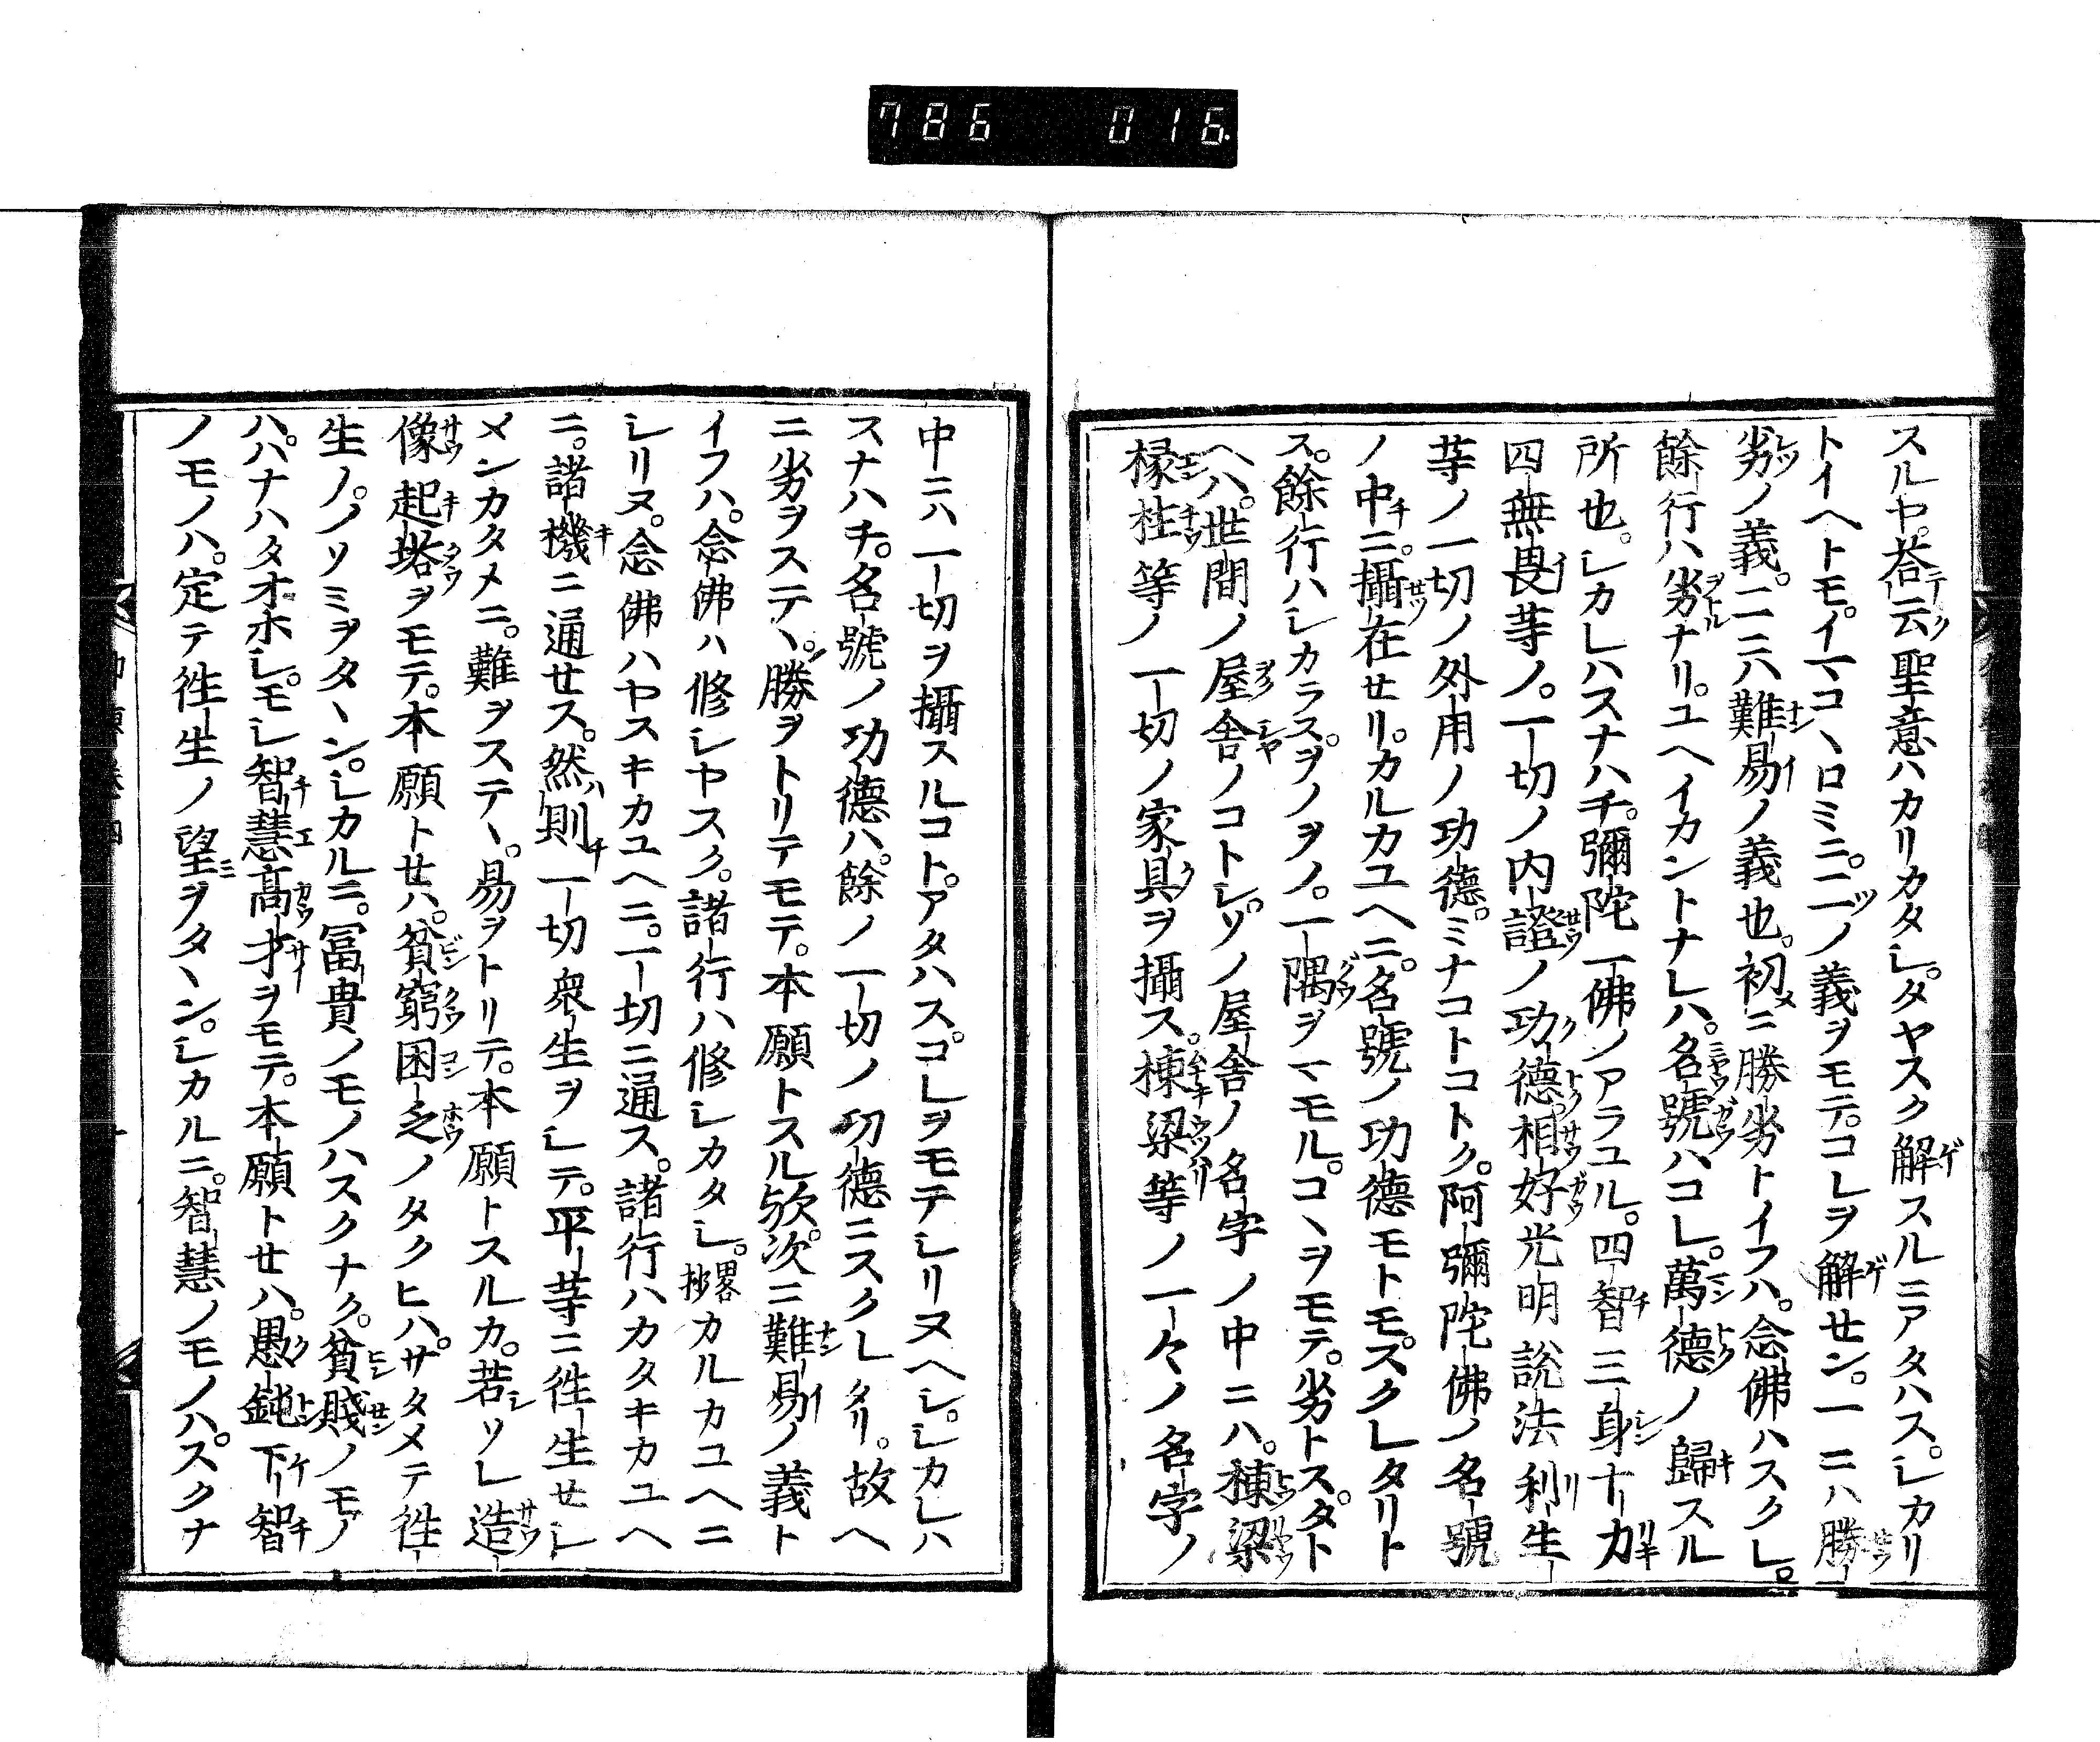 786 016
スルヤ。荅云聖意ハカリカタシ。タヤスク解スルニアタハス。シカリ
トイヘトモ。イマコヽロミニ。二ツノ義ヲモテ。コレヲ解セン。一ニハ勝
劣ノ義。二ニハ難易ノ義也。初ニ勝劣トイフハ。念佛ハスクレ。
餘行ハ劣ナリ。ユヘイカントナレハ。名號ハコレ。萬德ノ歸スル
所也。シカレハスナハチ。彌陀一佛ノアラユル。四智三身十力
四無畏荨ノ。一切ノ内證ノ功德。相好光明說法利生
荨ノ一切ノ外用ノ功德。ミナコトコトク。阿彌陀佛ノ名號
ノ中ニ。攝在セリ。カルカユヘニ。名號ノ功德モトモ。スクレタリト
ス。餘行ハシカラス。ヲノヲノ。一隅ヲマモル。コヽヲモテ。劣トス。タト
ヘハ。世間ノ屋舎ノコトシ。ソノ屋舎ノ名字ノ中ニハ。棟梁
椽柱等ノ一切ノ家具ヲ攝ス。棟梁等ノ一々ノ名字ノ
中ニハ一切ヲ攝スルコト。アタハス。コレヲモテシリヌヘシ。シカレハ
スナハチ。名號ノ功德ハ。餘ノ一切ノ功德ニスクレタリ。故ヘ
ニ劣ヲステヽ。勝ヲトリテモテ。本願トスル欤。次ニ難易ノ義ト
イフハ。念佛ハ修シヤスク。諸行ハ修シカタシ。畧抄カルカユヘニ
シリヌ。念佛ハヤスキカユヘニ。一切ニ通ス。諸行ハカタキカユヘ
ニ。諸機ニ通セス。然則一切衆生ヲシテ。平荨ニ徃生セシ
メンカタメニ。難ヲステヽ。易ヲトリテ。本願トスルカ。若ソレ造
像起塔ヲモテ。本願トセハ。貧窮困乏ノタクヒハ。サタメテ徃
生ノ。ノソミヲタヽン。シカルニ。冨貴ノモノハスクナク。貧賤ノモノ
ハ。ハナハタオホシ。モシ智慧高才ヲモテ。本願トセハ。愚鈍下智
ノモノハ。定テ徃生ノ望ヲタヽン。シカルニ。智慧ノモノハ。スクナ